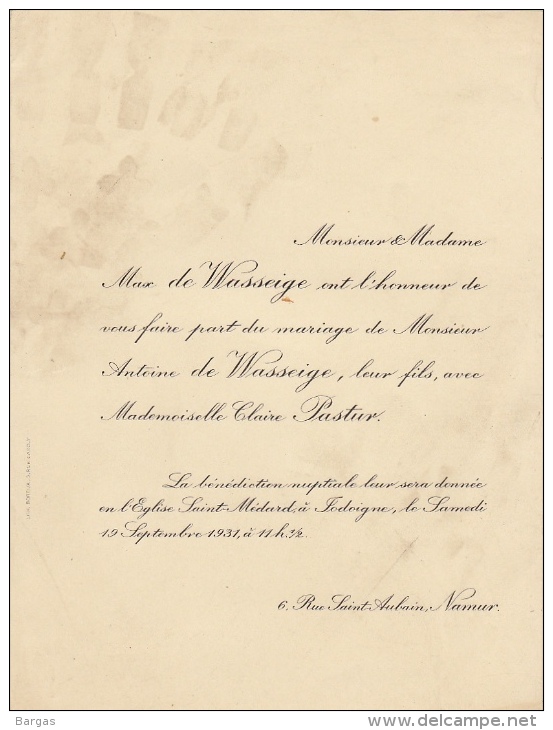 Monsieur & Madame
Max de Wasseige ont l'honneur de
vous faire part du mariage de Monsieur
Antoine de Wasseige, leur fils, avec
Mademoiselle Claire Pastur.
La bénédiction nuptiale leur sera donnée
en l'Eglise Saint-Médard, à Jodoigne, le Samedi
19 Septembre 1931, à 11 h. ½.
6. Rue Saint-Aubain, Namur.
Bargas
www.delcampe.net